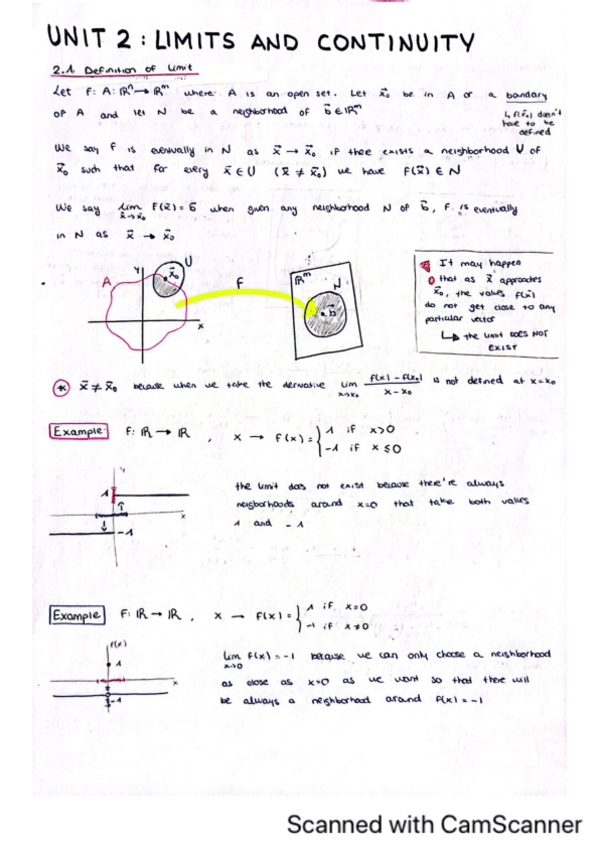 UNIT 2 : LIMITS AND CONTINUITY
2.1 Definition of limit
Let f: A: ℝⁿ → ℝᵐ where A is an open set. Let x⃗₀ be in A or a bondary
↳ f(x⃗₀) doesn't
have to be
defined
of A and let N be a neighborhood of b⃗ ∈ ℝᵐ
We say f is eventually in N as x⃗ → x⃗₀ if there exists a neighborhood U of
x⃗₀ such that for every x⃗ ∈ U (x⃗ ≠ x⃗₀) we have f(x⃗) ∈ N
We say lim f(x⃗) = b⃗ when given any neighborhood N of b⃗, f is eventually
x⃗→x⃗₀
in N as x⃗ → x⃗₀
A y x⃗₀ U x
f
ℝᵐ N b⃗
It may happen
that as x⃗ approaches
x⃗₀, the values f(x⃗)
do not get close to any
particular vector
↳ the limit DOES NOT
EXIST
* x⃗ ≠ x⃗₀ because when we take the derivative lim f(x) - f(x₀) / x - x₀ is not defined at x = x₀
x→x₀
Example: f: ℝ → ℝ , x → f(x) = { 1 if x>0
-1 if x ≤ 0
y
1
x
-1
the limit does not exist because there're always
neigborhoods around x=0 that take both values
1 and -1
Example f: ℝ → ℝ , x → f(x) = { 1 if x=0
-1 if x ≠ 0
f(x)
1
x
-1
lim f(x) = -1 because we can only choose a neighborhood
x→0
as close as x=0 as we want so that there will
be always a neighborhood around f(x) = -1
Scanned with CamScanner